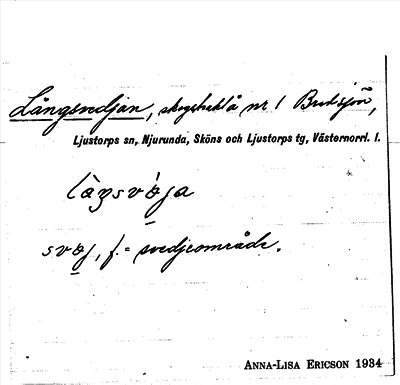 Långsvedjan, skogstrakt å nr 1 Bredsjön,
Ljustorps sn, Njurunda, Sköns och Ljustorps tg, Västernorrl. l.
sv , f. = svedjeområde.
ANNA-LISA ERICSON 1934